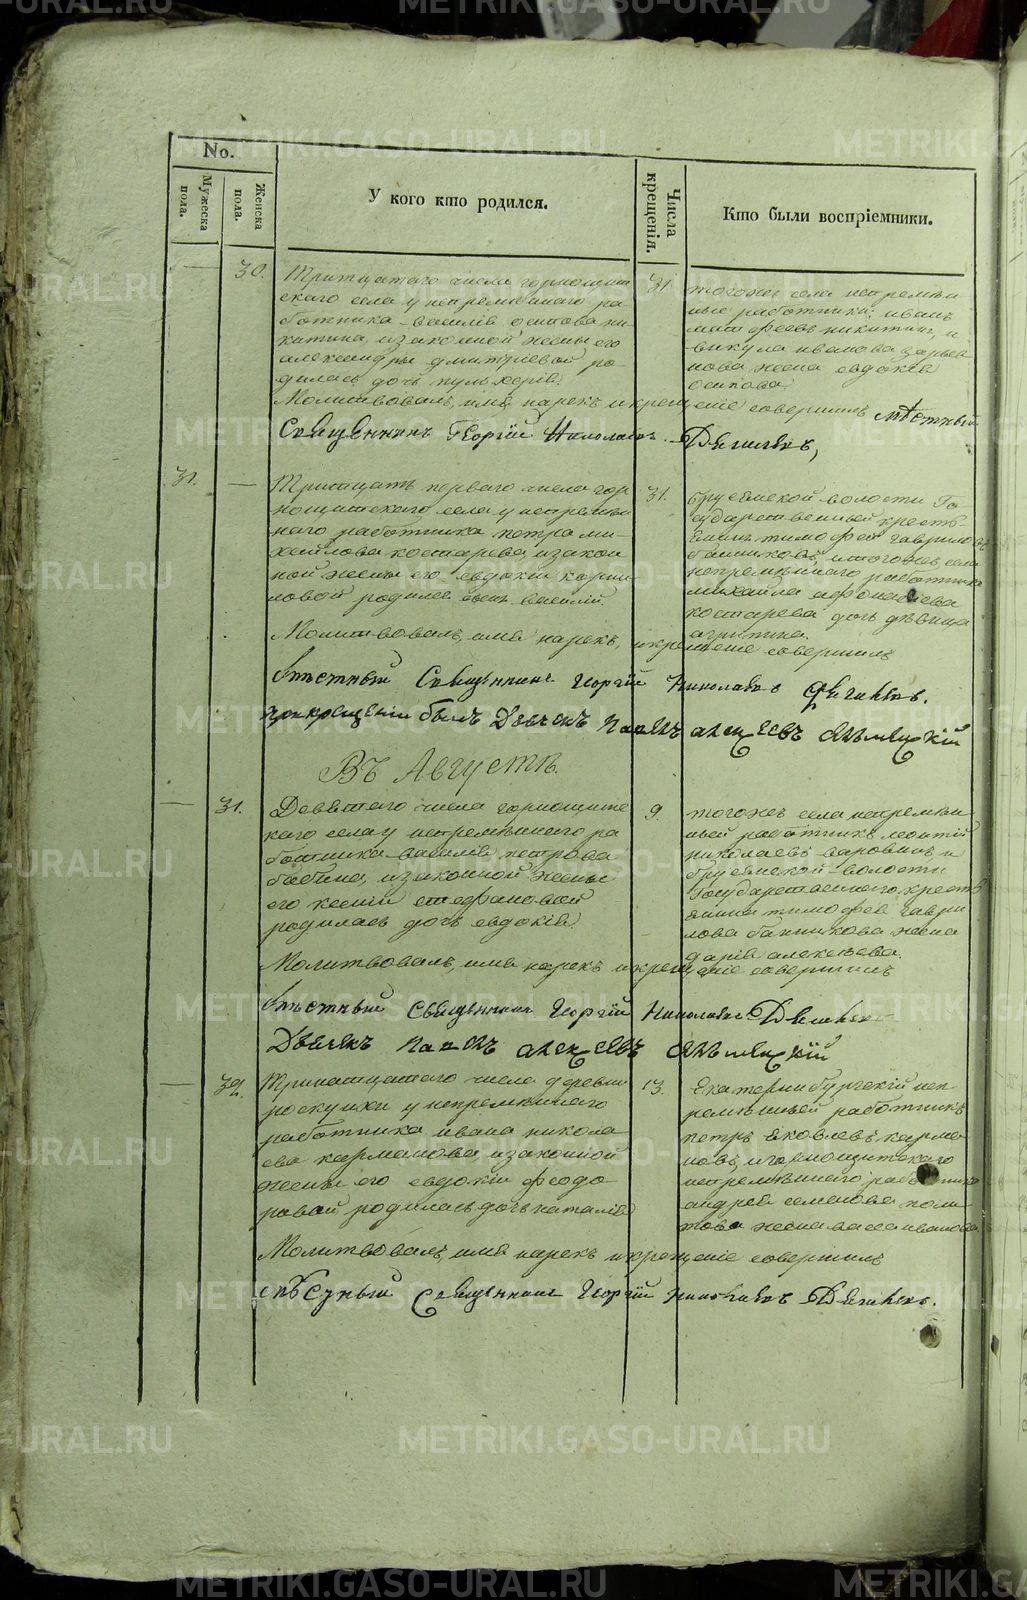 No.
Мужеска пола.
Женска пола.
У кого кто родился.
Числа крещенія.
Кто были воспріемники.
30.
Тритцатого числа горнощит
ского села у непремѣннаго ра
ботника василія осипова ни
китина, изаконной жены его
александры дмитріевой ро
дилась дочь пульхерія
31
тогожъ села непремѣн
ные работники, иванъ
матфеевъ никитинъ, и
викула иванова
нова жена евдокія
осипова
Молитвовалъ, имя нарекъ и крещеніе совершилъ мѣстный
Священникъ Георгій Николаевъ Дягилевъ,
31.
Тритцать перваго числа гор
нощитскаго села у непремѣн
наго работника петра ми
хайлова костарева, изакон
ной жены его евдокіи
ловой родился сынъ василій
31.
волости Го
сударственный кресть
янинъ тимофей гаврилов
банниковъ, итогожъ села
непремѣннаго работника
михайла афонасьева
костарева дочь дѣвица
агрипина.
Молитвовалъ, имя нарекъ, и крещеніе совершилъ
Мѣстный Священникъ Георгій Николаевъ Дягилевъ.
при крещеніи былъ Дьячекъ Павелъ алексѣевъ
Въ Августѣ.
31.
Девятаго числа горнощитс
каго села у непремѣннаго ра
ботника василія петрова
бабина, изаконной жены
его ксеніи стефановой
родилась дочь евдокія
9.
тогожъ села непремѣн
ный работникъ
николаевъ и
волости
Государственнаго кресть
янина тимофея гаври
лова банникова жена
дарія алексѣева.
Молитвовалъ, имя нарекъ и крещеніе совершилъ
Мѣстный Священникъ Георгій Николаевъ Дягилевъ
Дьячекъ Павелъ алексѣевъ
32.
Тринатцатаго числа деревни
у непремѣннаго
работника ивана никола
ева карманова, изаконной
жены его евдокіи феодо
ровой родилась дочь наталія
13.
Екатеринбургскій неп
ремѣнный работникъ
петръ яковлевъ карма
новъ, игорнощитскаго
непремѣннаго работника
андрея семенова
това жена иванова
Молитвовалъ, имя нарекъ и крещеніе совершилъ
мѣстный Священникъ Георгій Николаевъ Дягилевъ.
METRIKI.GASO-URAL.RU